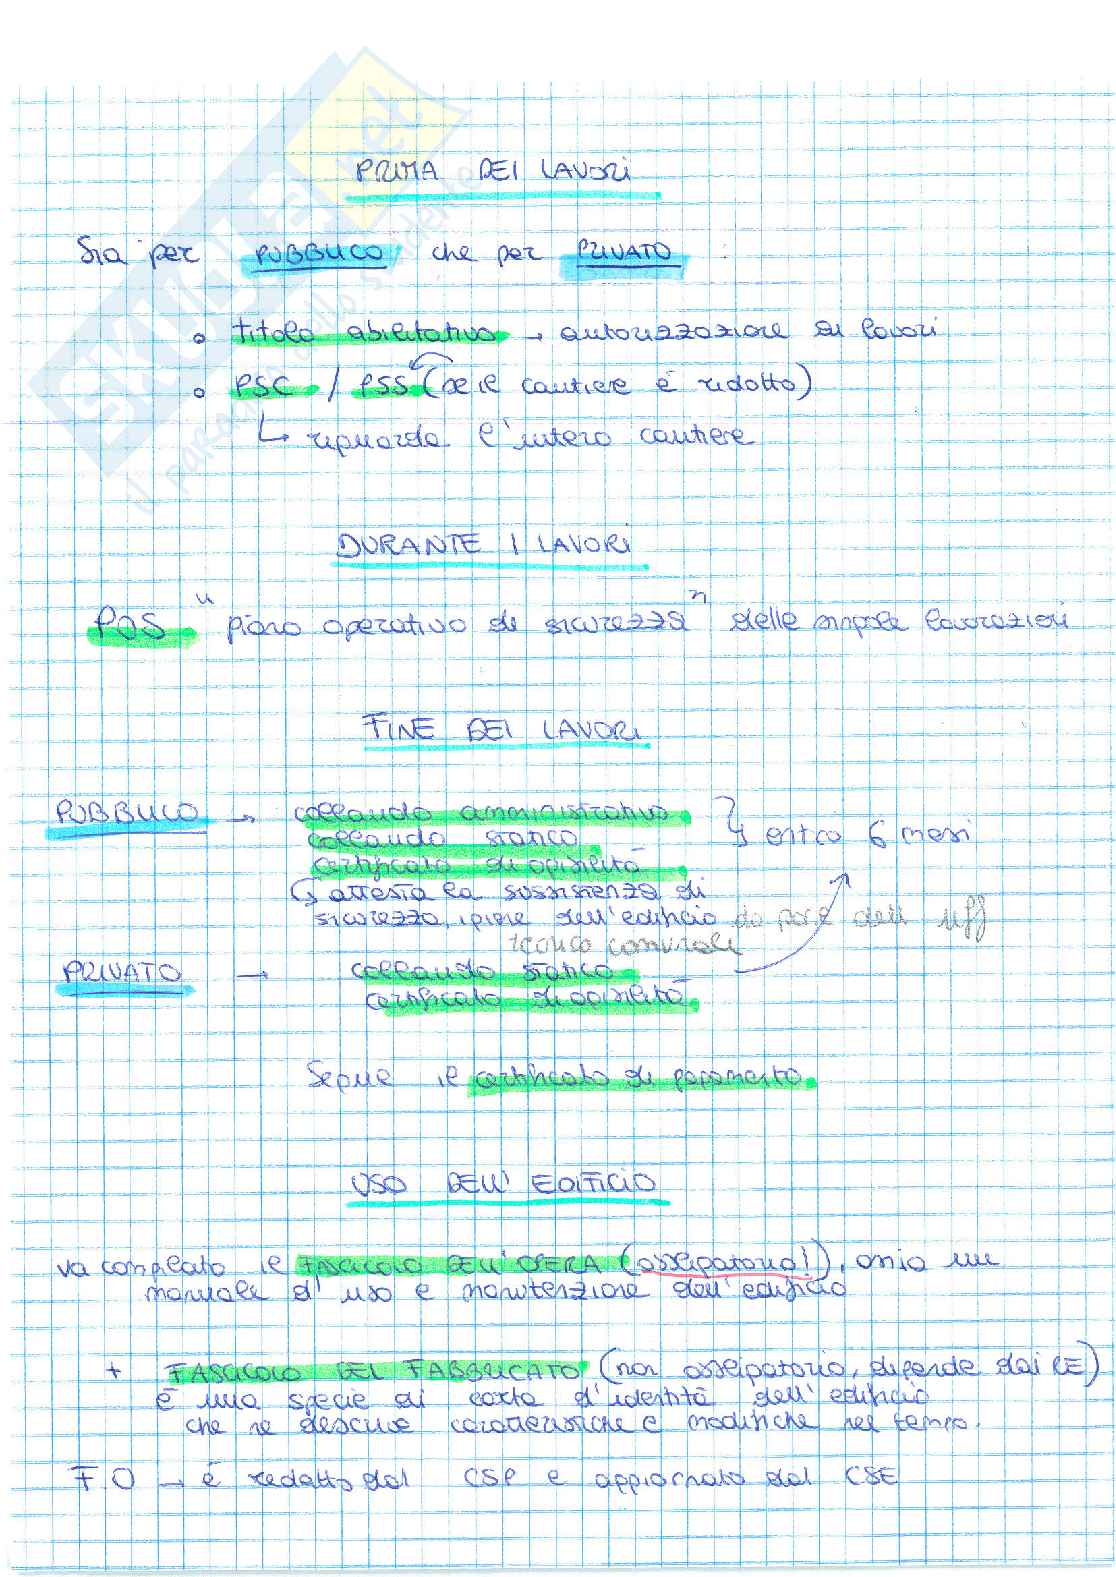 PRIMA DEI LAVORI
Sia per PUBBLICO che per PRIVATO :
titolo abilitativo → autorizzazione ai lavori
PSC / PSS (se il cantiere è ridotto)
↳ riguarda l'intero cantiere
DURANTE I LAVORI
POS "piano operativo di sicurezza" delle singole lavorazioni
FINE DEI LAVORI
PUBBLICO → collaudo amministrativo
collaudo statico
certificato di agibilità
entro 6 mesi
↳ attesta la sussistenza di
sicurezza, igiene dell'edificio da parte dell' uff
tecnico comunale
PRIVATO → collaudo statico
certificato di agibilità
Segue il certificato di pagamento
USO DELL' EDIFICIO
va compilato il FASCICOLO DELL'OPERA (obbligatorio!), ossia un
manuale d' uso e manutenzione dell' edificio
+ FASCICOLO DEL FABBRICATO (non obbligatorio, dipende dai RE)
è una specie di carta d'identità dell' edificio
che ne descrive caratteristiche e modifiche nel tempo.
F.O → è redatto dal CSP e aggiornato dal CSE
SKUOLA.net
il paradiso dello studente